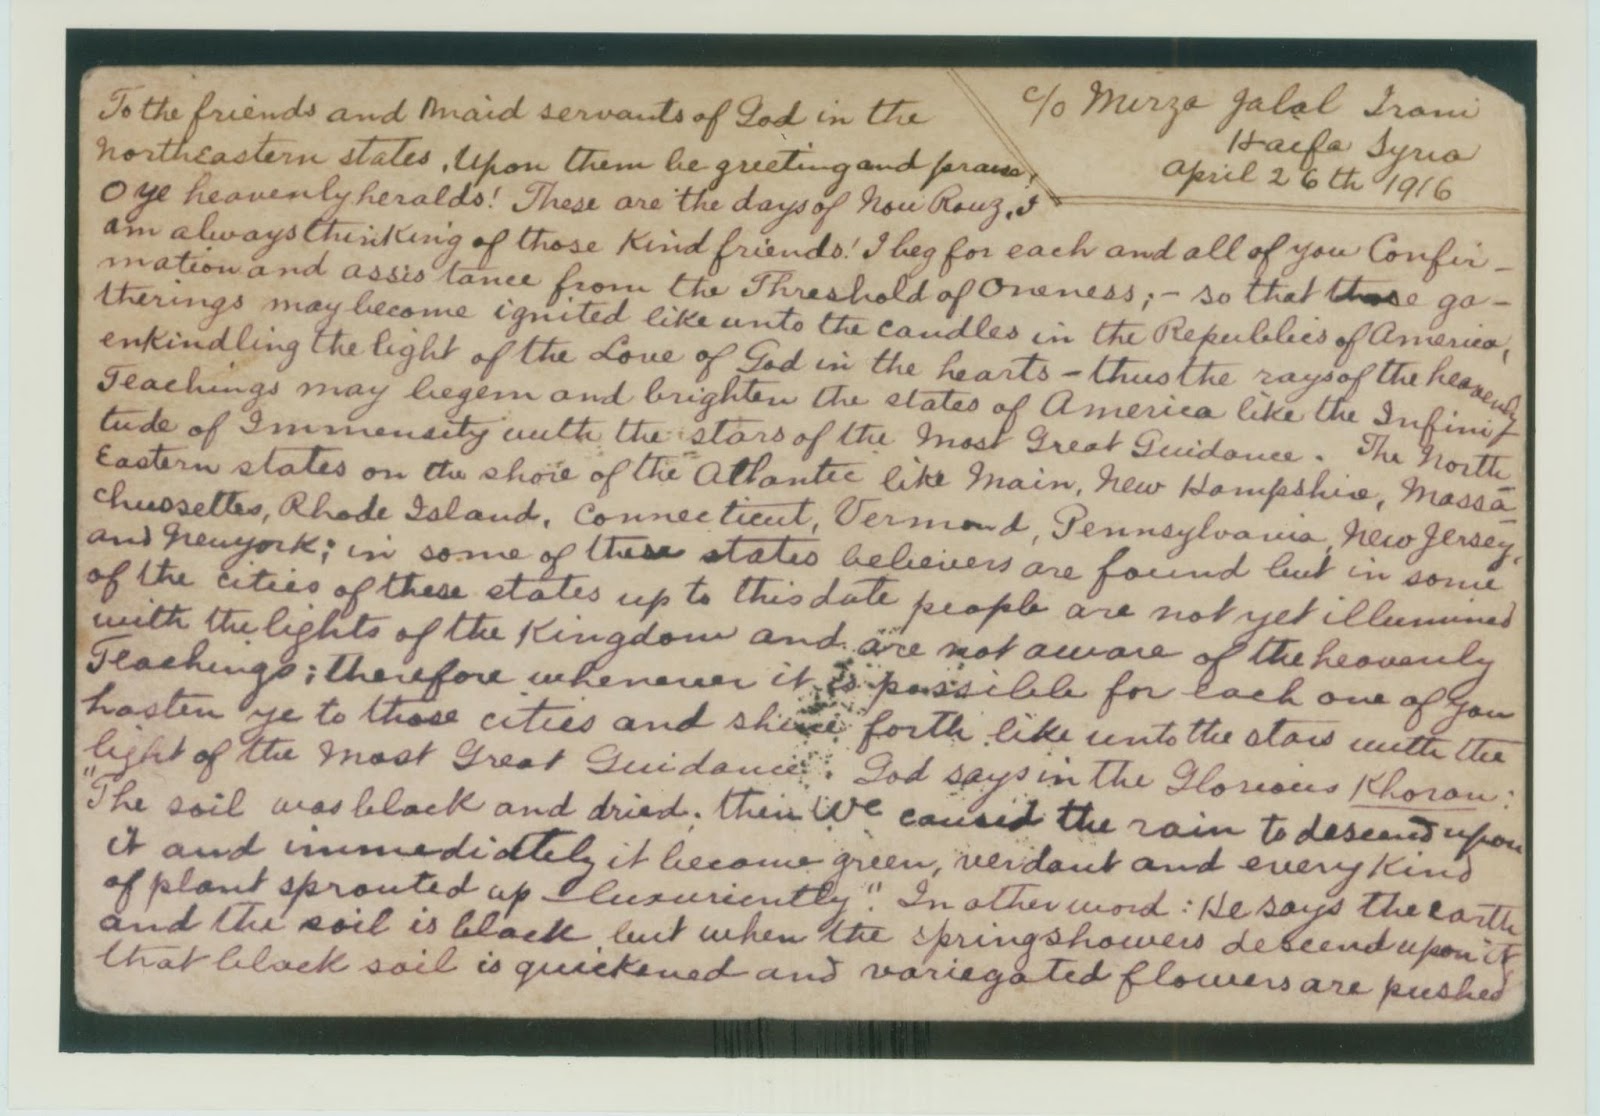 c/o Mirza Jalal Irani
Haifa Syria
April 26th 1916
To the friends and Maid servants of God in the
Northeastern states, Upon them be greeting and praise!
O ye heavenly heralds! These are the days of Nou Rouz. I
am always thinking of those kind friends! I beg for each and all of you Confir-
mation and assistance from the Threshold of Oneness; - so that those ga-
therings may become ignited like unto the candles in the Republics of America,
enkindling the light of the Love of God in the hearts - thus the rays of the heavenly
Teachings may begem and brighten the states of America like the Infini-
tude of Immensity with the stars of the Most Great Guidance. The North
Eastern states on the shore of the Atlantic like Main, New Hampshire, Massa-
chussettes, Rhode Island, Connecticut, Vermond, Pennsylvania, New Jersey,
and Newyork; in some of these states believers are found but in some
of the cities of these states up to this date people are not yet illumined
with the lights of the Kingdom and are not aware of the heavenly
Teachings; therefore whenever it is possible for each one of you
hasten ye to those cities and shine forth like unto the stars with the
light of the Most Great Guidance. God says in the Glorious Khoran:
"The soil was black and dried; then We caused the rain to descend upon
it and immediately it become green, verdant and every kind
of plant sprouted up luxuriently". In other word: He says the earth
and the soil is black but when the spring showers descend upon it
that black soil is quickened and variegated flowers are pushed